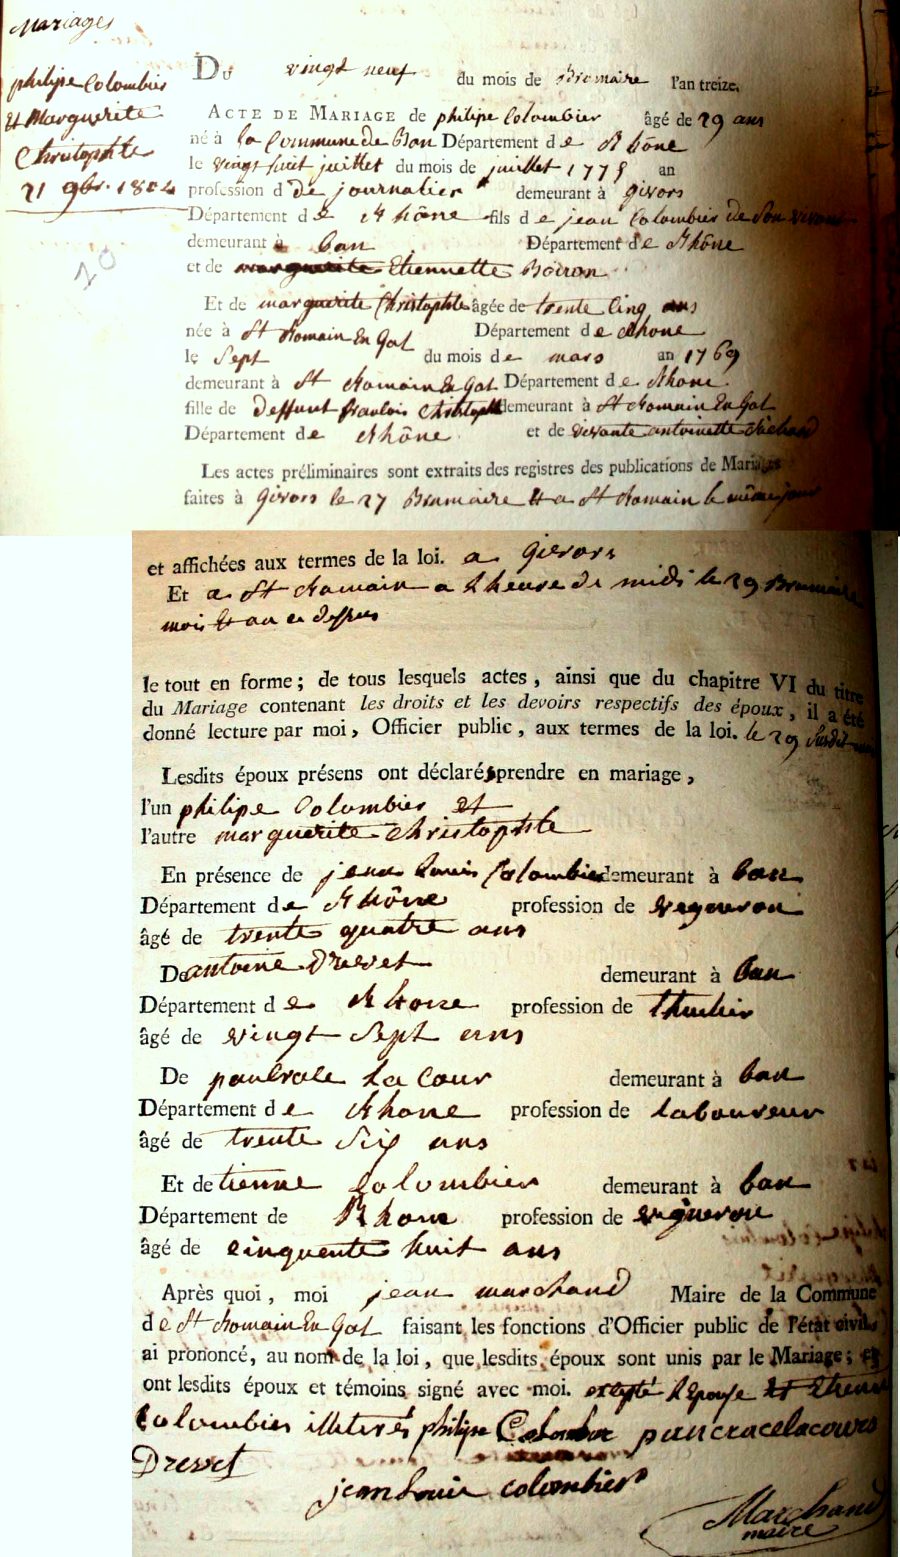 Mariages
philipe Colombier
et Marguerite
Christophle
21 9br. 1804
20
Du vingt neuf du mois de Brumaire l'an treize.
Acte de Mariage de philipe Colombier âgé de 29 ans
né à la Commune de Ban Département de Rhône
le vingt huit juillet du mois de juillet 1775 an
profession d de journalier demeurant à givors
Département de Rhône fils de jean Colombier de son vivant
demeurant à ban Département de Rhône
et de marguerite Etiennette Boiron
Et de marguerite Christophle âgée de trente Cinq ans
née à St Romain En Gal Département de Rhone
le Sept du mois de mars an 1769
demeurant à St Romain En Gal Département de Rhone
fille de deffunt francois Christophle demeurant à St Romain En Gal
Département de Rhône et de vivante antoinette
Les actes préliminaires sont extraits des registres des publications de Mariages
faites à Givors le 27 Brumaire et a St Romain le même jour
et affichées aux termes de la loi. a Givors
Et a St Romain a l heure de midi le 29 Brumaire
mois et an ci dessus
le tout en forme ; de tous lesquels actes , ainsi que du chapitre VI du titre
du Mariage contenant les droits et les devoirs respectifs des époux , il a été
donné lecture par moi , Officier public , aux termes de la loi. le 29 Susdit
Lesdits époux présens ont déclarés prendre en mariage ,
l'un philipe Colombier et
l'autre marguerite Christophle
En présence de jean Louis Colombier demeurant à ban
Département de Rhône profession de vigneron
âgé de trente quatre ans
De antoine Drevet demeurant à Ban
Département de Rhone profession de
âgé de vingt Sept ans
De La Cour demeurant à ban
Département de Rhone profession de laboureur
âgé de trente Six ans
Et de tienne Colombier demeurant à ban
Département de Rhone profession de vigneron
âgé de cinquente huit ans
Après quoi , moi jean marchand Maire de la Commune
de St Romain En Gal faisant les fonctions d'Officier public de l'état civil
ai prononcé, au nom de la loi , que lesdits époux sont unis par le Mariage ; et
ont lesdits époux et témoins signé avec moi. excepté L'Epouse et Etienne
Colombier illiterés philipe Colombier pancrace lacours
Drevet
jean Louis colombier
Marchand
maire